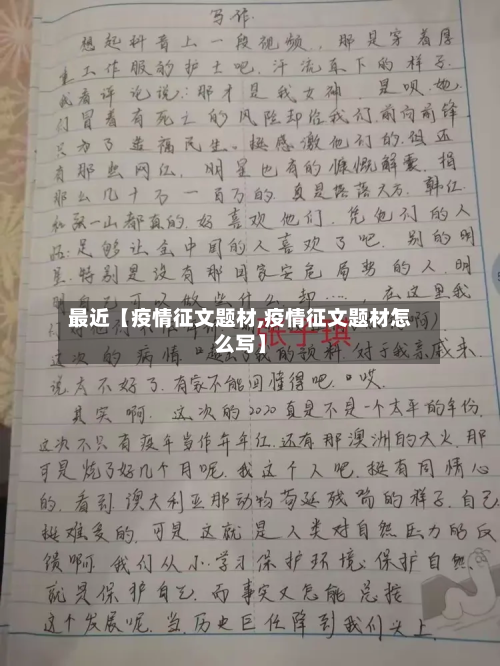 写作.
想起抖音上一段视频，那是穿着厚
重工作服的护士吧.汗流车下的样子.
我看评论说:那才是我女神.是呗.她
们冒着有死亡的风险却给我们.前向前锋
只为了造福民生.挺感激他们的.但还
有那些网红,明星也有的慷慨解囊,捐
那么几十万一百万的.真是落落大方.韩红
都真的.好喜欢他们.凭他们的人
品足够让全中国的人喜欢了吧.别的明
星.特别是没有那回家安危局势的人.明
在这里我
最近【疫情征文题材,疫情征文题材怎
么写】
张子琪
这次的病情 我的预料.对于我亲戚来
说太不好了.有家不能回懂得吧.。哎.
其实啊.这次的2020真是不是一个太平的年份.
这次不只有 还有那澳洲的大火.那
可是烧了好几个月呢.我这个人吧.挺有同情心
的.看到澳大利亚那动物苟延残喘的样子.自己
挺难受的.可是这就是人类对自然压力的反
馈啊.我们从小学习保护环境.保护自然.
就是保护自己.而事实又怎能总按
这个发展呢.当历史巨任降到我们头上.